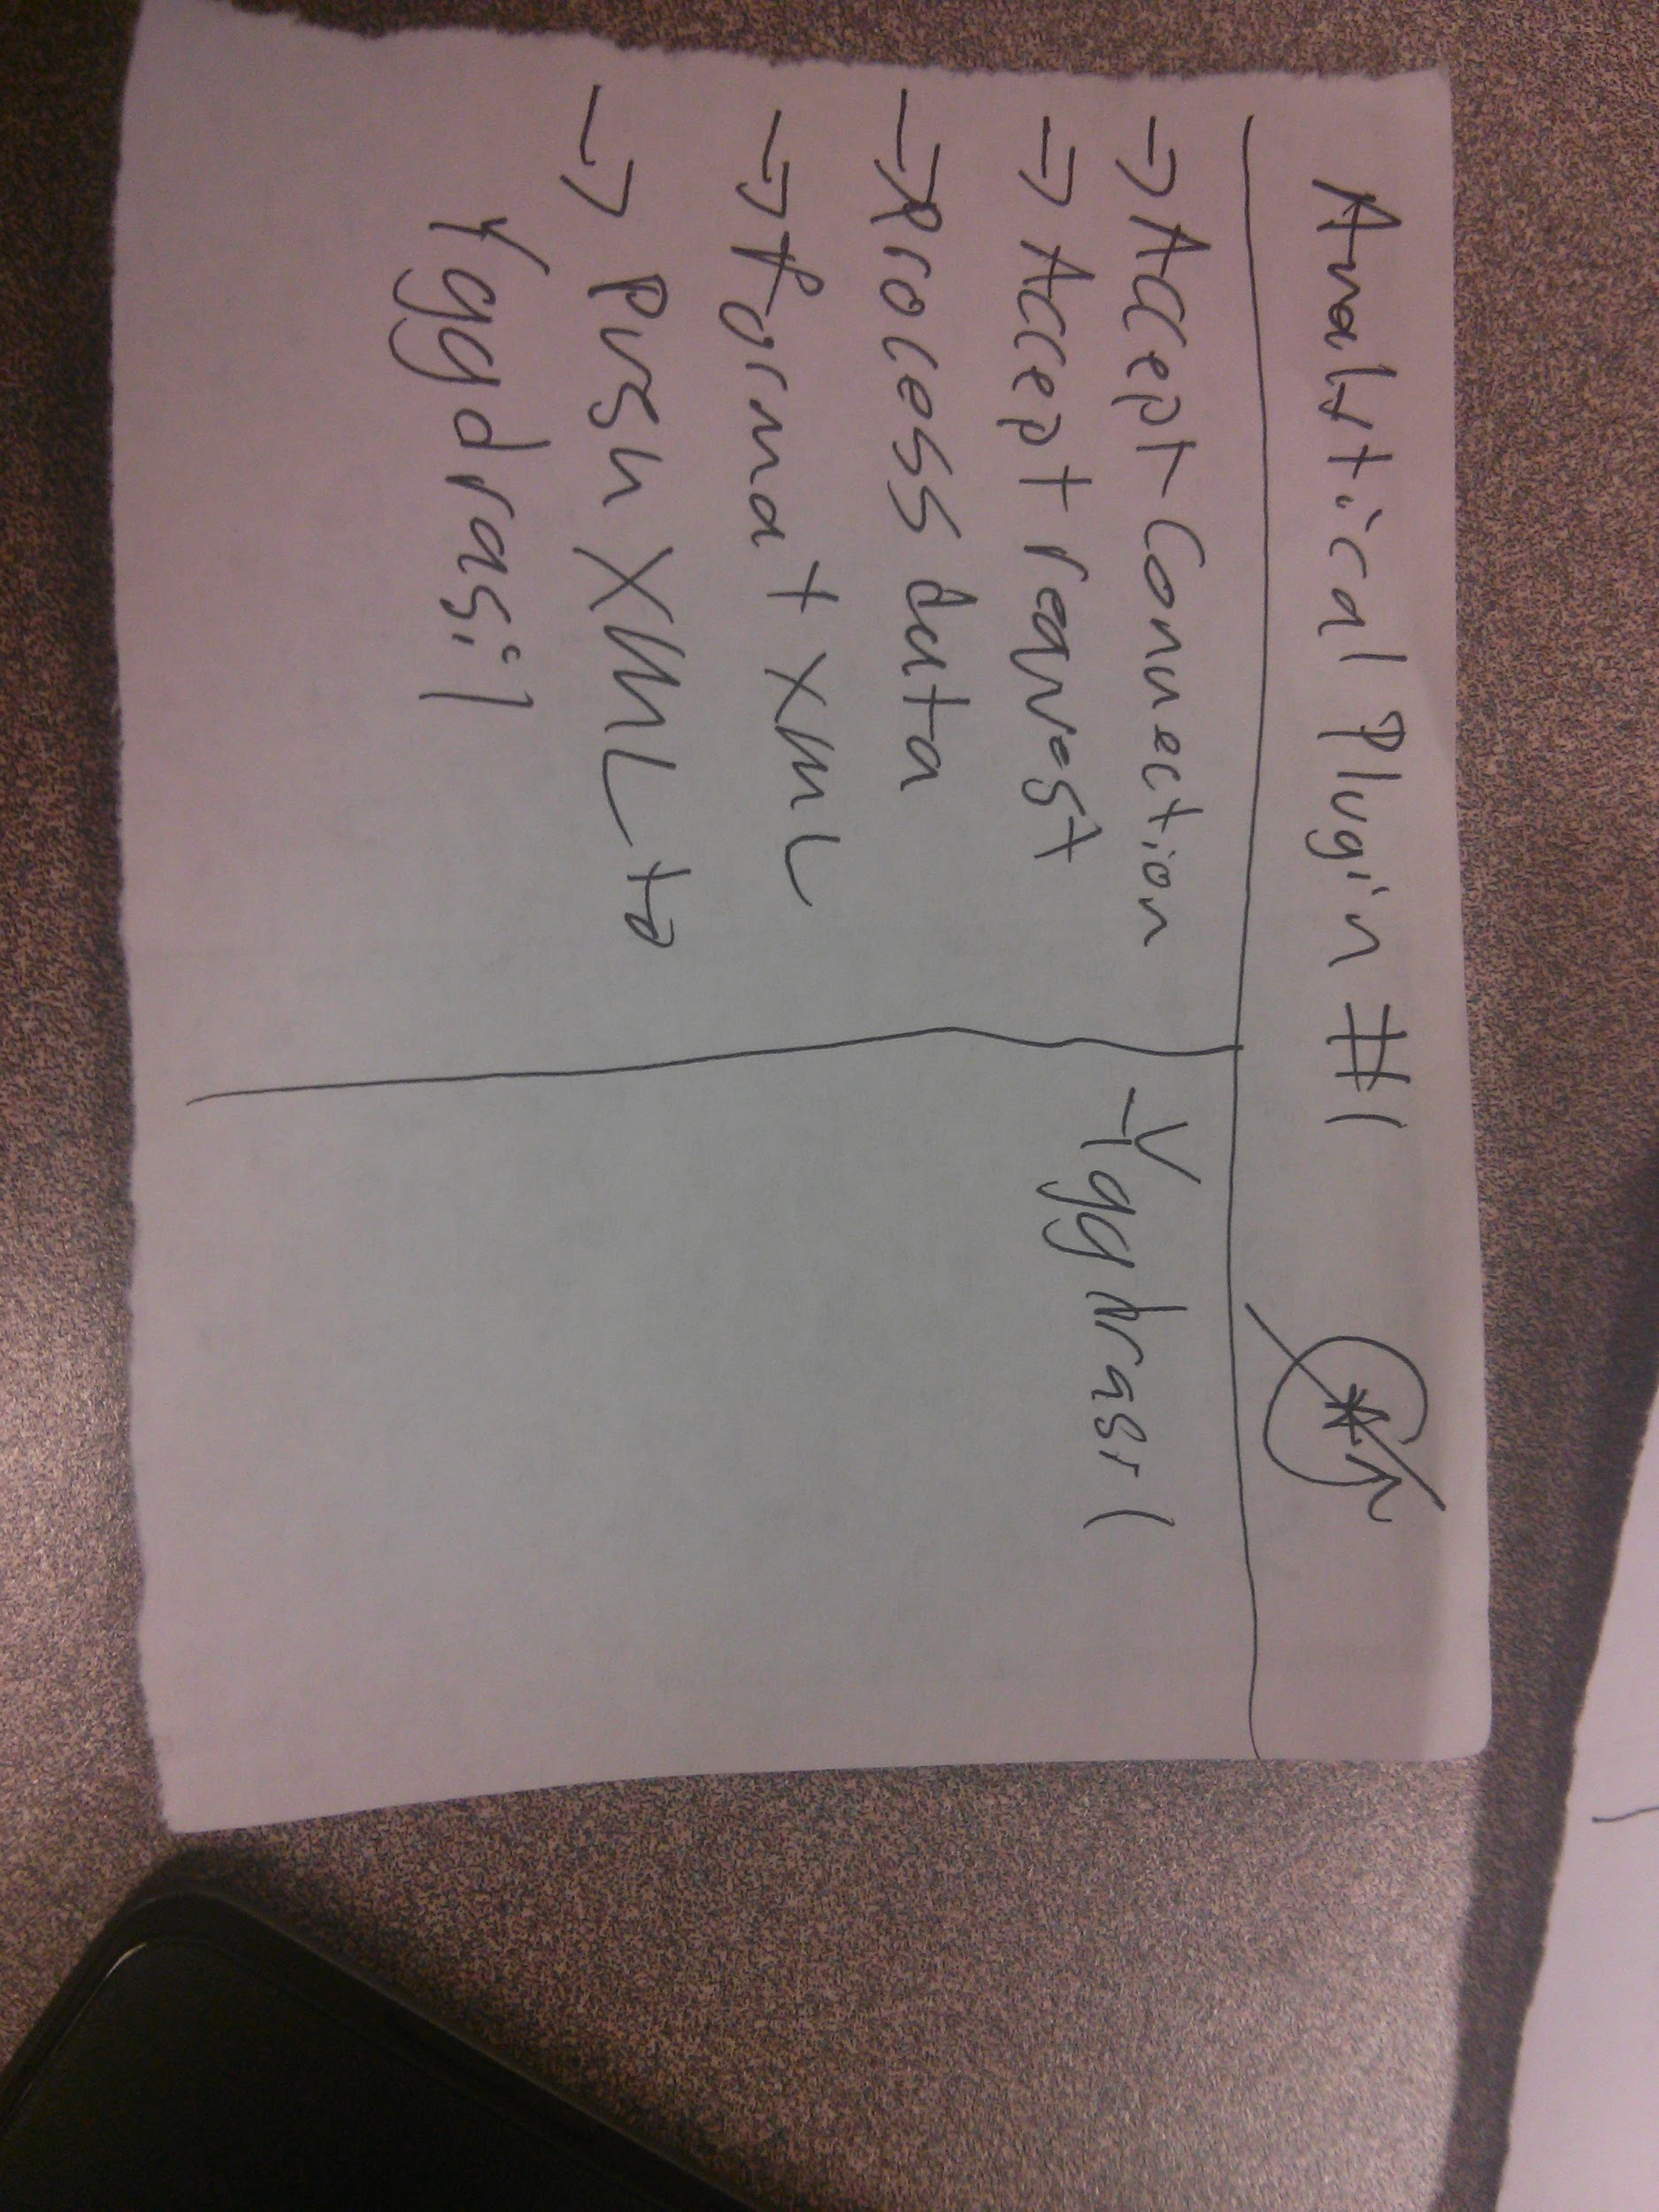 Analytical Plugin #1
→ Accept Connection
→ Accept request
→ Process data
→ format XML
→ Push XML to
Yggdrasil
- Yggdrasil